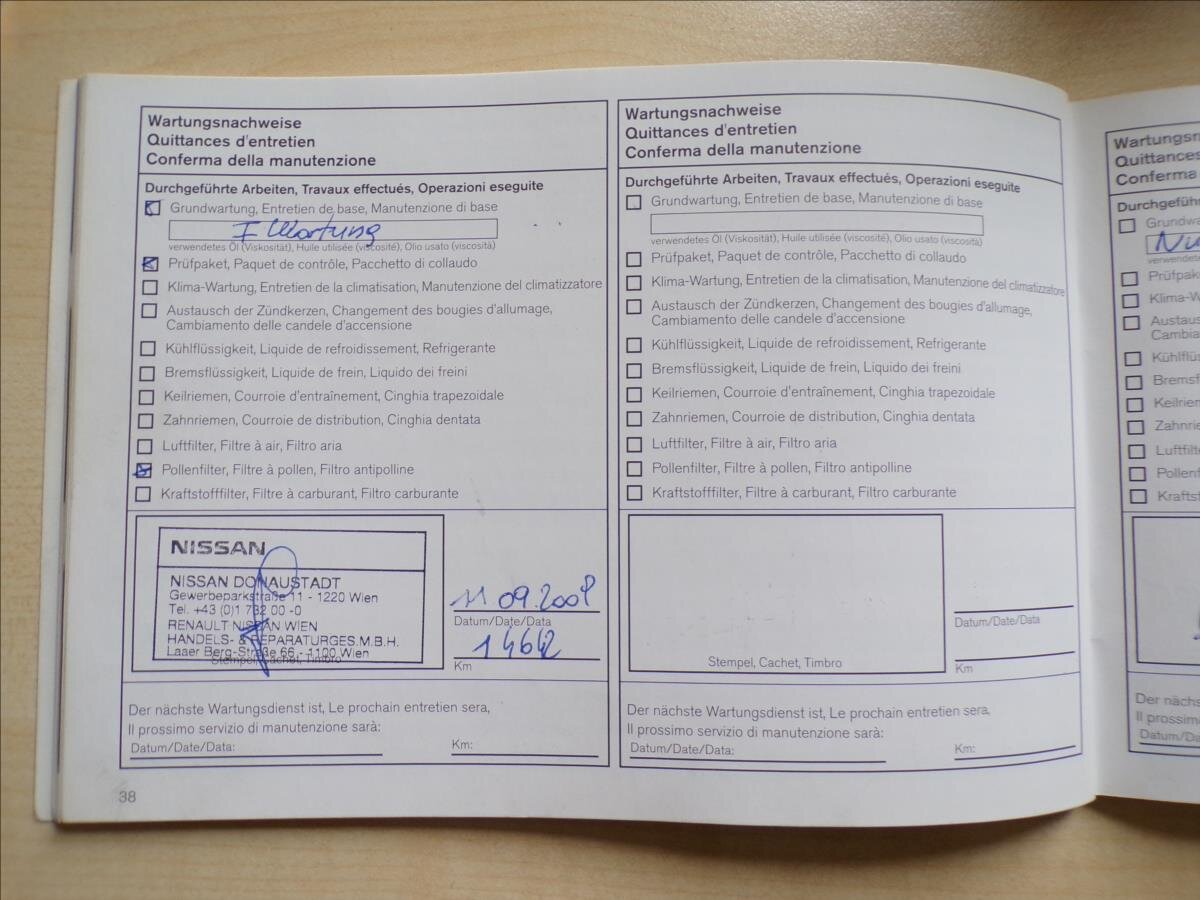 Wartungsnachweise
Quittances d'entretien
Conferma della manutenzione
Durchgeführte Arbeiten, Travaux effectués, Operazioni eseguite
Grundwartung, Entretien de base, Manutenzione di base
I Wartung
verwendetes Öl (Viskosität), Huile utilisée (viscosité), Olio usato (viscosità)
Prüfpaket, Paquet de contrôle, Pacchetto di collaudo
Klima-Wartung, Entretien de la climatisation, Manutenzione del climatizzatore
Austausch der Zündkerzen, Changement des bougies d'allumage,
Cambiamento delle candele d'accensione
Kühlflüssigkeit, Liquide de refroidissement, Refrigerante
Bremsflüssigkeit, Liquide de frein, Liquido dei freini
Keilriemen, Courroie d'entraînement, Cinghia trapezoidale
Zahnriemen, Courroie de distribution, Cinghia dentata
Luftfilter, Filtre à air, Filtro aria
Pollenfilter, Filtre à pollen, Filtro antipolline
Kraftstofffilter, Filtre à carburant, Filtro carburante
NISSAN
NISSAN DONAUSTADT
Gewerbeparkstraße 11 - 1220 Wien
Tel. +43 (0)1 732 00 -0
RENAULT NISSAN WIEN
HANDELS- & REPARATURGES.M.B.H.
Laaer Berg-Straße 66 - 1100 Wien
Stempel, Cachet, Timbro
11 09.2009
Datum/Date/Data
14642
Km
Der nächste Wartungsdienst ist, Le prochain entretien sera,
Il prossimo servizio di manutenzione sarà:
Datum/Date/Data:
Km:
38
Wartungsnachweise
Quittances d'entretien
Conferma della manutenzione
Durchgeführte Arbeiten, Travaux effectués, Operazioni eseguite
Grundwartung, Entretien de base, Manutenzione di base
verwendetes Öl (Viskosität), Huile utilisée (viscosité), Olio usato (viscosità)
Prüfpaket, Paquet de contrôle, Pacchetto di collaudo
Klima-Wartung, Entretien de la climatisation, Manutenzione del climatizzatore
Austausch der Zündkerzen, Changement des bougies d'allumage,
Cambiamento delle candele d'accensione
Kühlflüssigkeit, Liquide de refroidissement, Refrigerante
Bremsflüssigkeit, Liquide de frein, Liquido dei freini
Keilriemen, Courroie d'entraînement, Cinghia trapezoidale
Zahnriemen, Courroie de distribution, Cinghia dentata
Luftfilter, Filtre à air, Filtro aria
Pollenfilter, Filtre à pollen, Filtro antipolline
Kraftstofffilter, Filtre à carburant, Filtro carburante
Stempel, Cachet, Timbro
Datum/Date/Data
Km
Der nächste Wartungsdienst ist, Le prochain entretien sera,
Il prossimo servizio di manutenzione sarà:
Datum/Date/Data:
Km:
Wartungsn
Quittances
Conferma
Durchgeführ
Grundwa
verwendete
Prüfpake
Klima-W
Austaus
Cambia
Kühlflüs
Bremsf
Keilrien
Zahnrie
Luftfilt
Pollenf
Krafts
Der nächs
Il prossim
Datum/Da